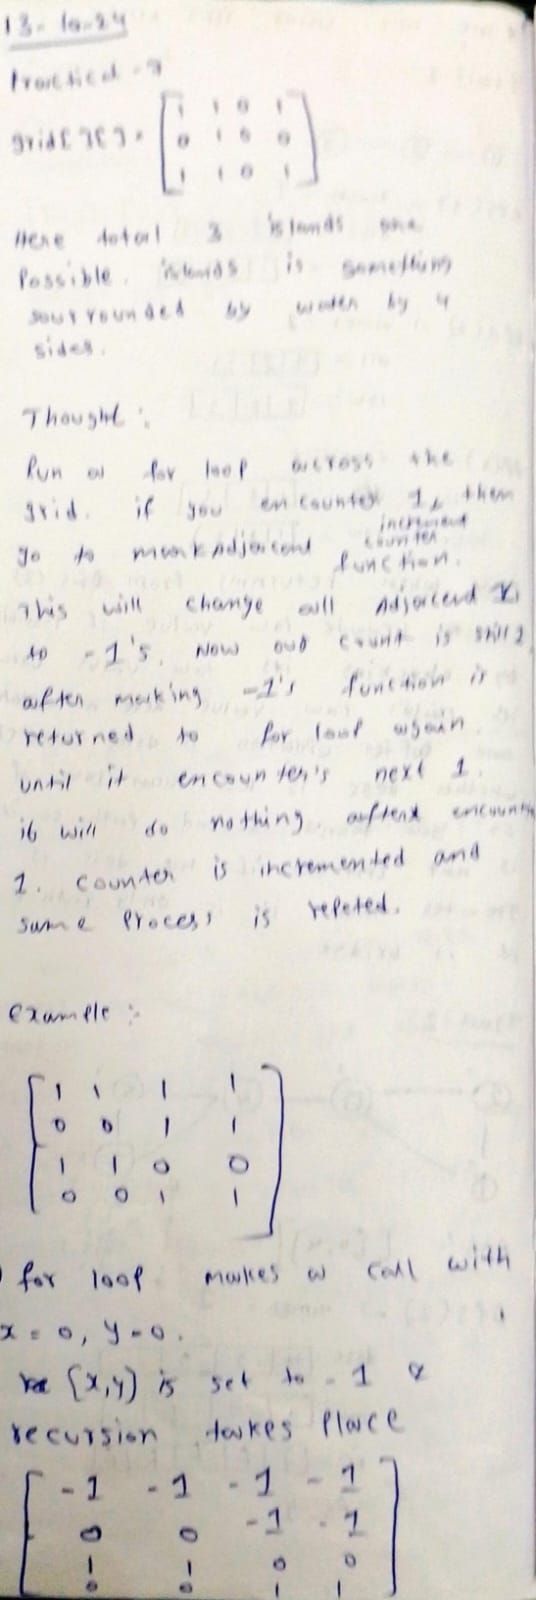 13-10-24
Practical - 7
grid[ ][ ] =
1 1 0 1
0 1 0 0
1 1 0 1
Here total 3 islands are
Possible. islands is something
sourrounded by water by 4
sides.
Thought :
Run a for loop across the
grid. if you encounter 1, then
increment
counter
go to mark Adjacent function.
This will change all Adjacent 1
to -1's. Now our count is still 1
after marking -1's function is
returned to for loop again.
until it encounter's next 1.
it will do nothing. after encounter
1. counter is incremented and
same Process is repeted.
Example :
1 1 1 1
0 0 1 1
1 1 0 0
0 0 1 1
for loop makes a call with
x = 0, y = 0.
(x,y) is set to -1 &
recursion takes place
-1 -1 -1 -1
0 0 -1 -1
1 1 0 0
0 0 1 1